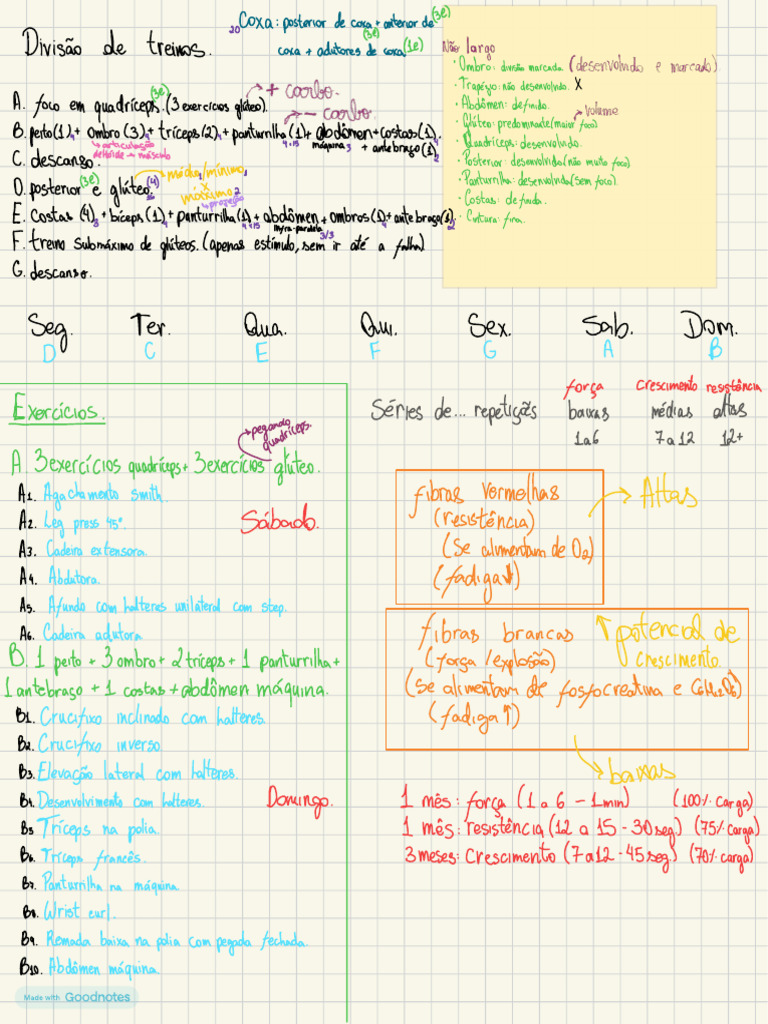 20 Coxa: posterior de coxa (3e) + anterior de
coxa (3e) + adutores de coxa (1e)
Divisão de treinos.
A. foco em quadríceps (3e). (3 exercícios glúteo).
+ carbo.
- carbo.
B. peito(1)4 + ombro (3)4 + tríceps(2)4 + panturrilha(1) 4×15 + abdômen máquina 3 + costas(1)4
+ antebraço(1)2
articulação
deltóide → músculo
C. descanso.
médio/mínimo
x
máximo
projeção
D. posterior (3e) e glúteo. (4)
E. costas (4)3 + bíceps(1)4 + panturrilha(1) 4×15 + abdômen infra-paralela 3/3 + ombros(1)4 + antebraço(1)2
F. treino submáximo de glúteos. (apenas estímulo, sem ir até a falha)
G. descanso.
Não largo
· Ombro: divisão marcada (desenvolvido e marcado)
· Trapézio: não desenvolvido. X
· Abdômen: definido.
volume
· Glúteo: predominante (maior foco)
· Quadríceps: desenvolvido.
· Posterior: desenvolvido (não muito foco)
· Panturrilha: desenvolvida (sem foco).
· Costas: definida.
· Cintura: fina.
Seg. Ter. Qua. Qui. Sex. Sab. Dom.
D C E F G A B
Exercícios.
pegando quadríceps.
A. 3 exercícios quadríceps + 3 exercícios glúteo.
A1. Agachamento smith.
A2. Leg press 45°.
Sábado.
A3. Cadeira extensora.
A4. Abdutora.
A5. Afundo com halteres unilateral com step.
A6. Cadeira adutora
B. 1 peito + 3 ombro + 2 tríceps + 1 panturrilha +
1 antebraço + 1 costas + abdômen máquina.
B1. Crucifixo inclinado com halteres.
B2. Crucifixo inverso
B3. Elevação lateral com halteres.
B4. Desenvolvimento com halteres.
Domingo.
B5 Tríceps na polia.
B6. Tríceps francês.
B7. Panturrilha na máquina
B8. Wrist curl.
B9. Remada baixa na polia com pegada fechada.
B10. Abdômen máquina
força crescimento resistência
Séries de... repetiçãs baixas médias altas
1 a 6 7 a 12 12+
fibras vermelhas
(resistência)
(se alimentam de O2)
(fadiga↓)
→ Altas
fibras brancas
(força/explosão)
(se alimentam de fosfocreatina e C6H12O6)
(fadiga↑)
↑ potencial de
crescimento
→ baixas
1 mês: força (1 a 6 - 1 min) (100% carga)
1 mês: resistência (12 a 15 - 30 seg) (75% carga)
3 meses: Crescimento (7 a 12 - 45 seg.) (70% carga)
Made with Goodnotes